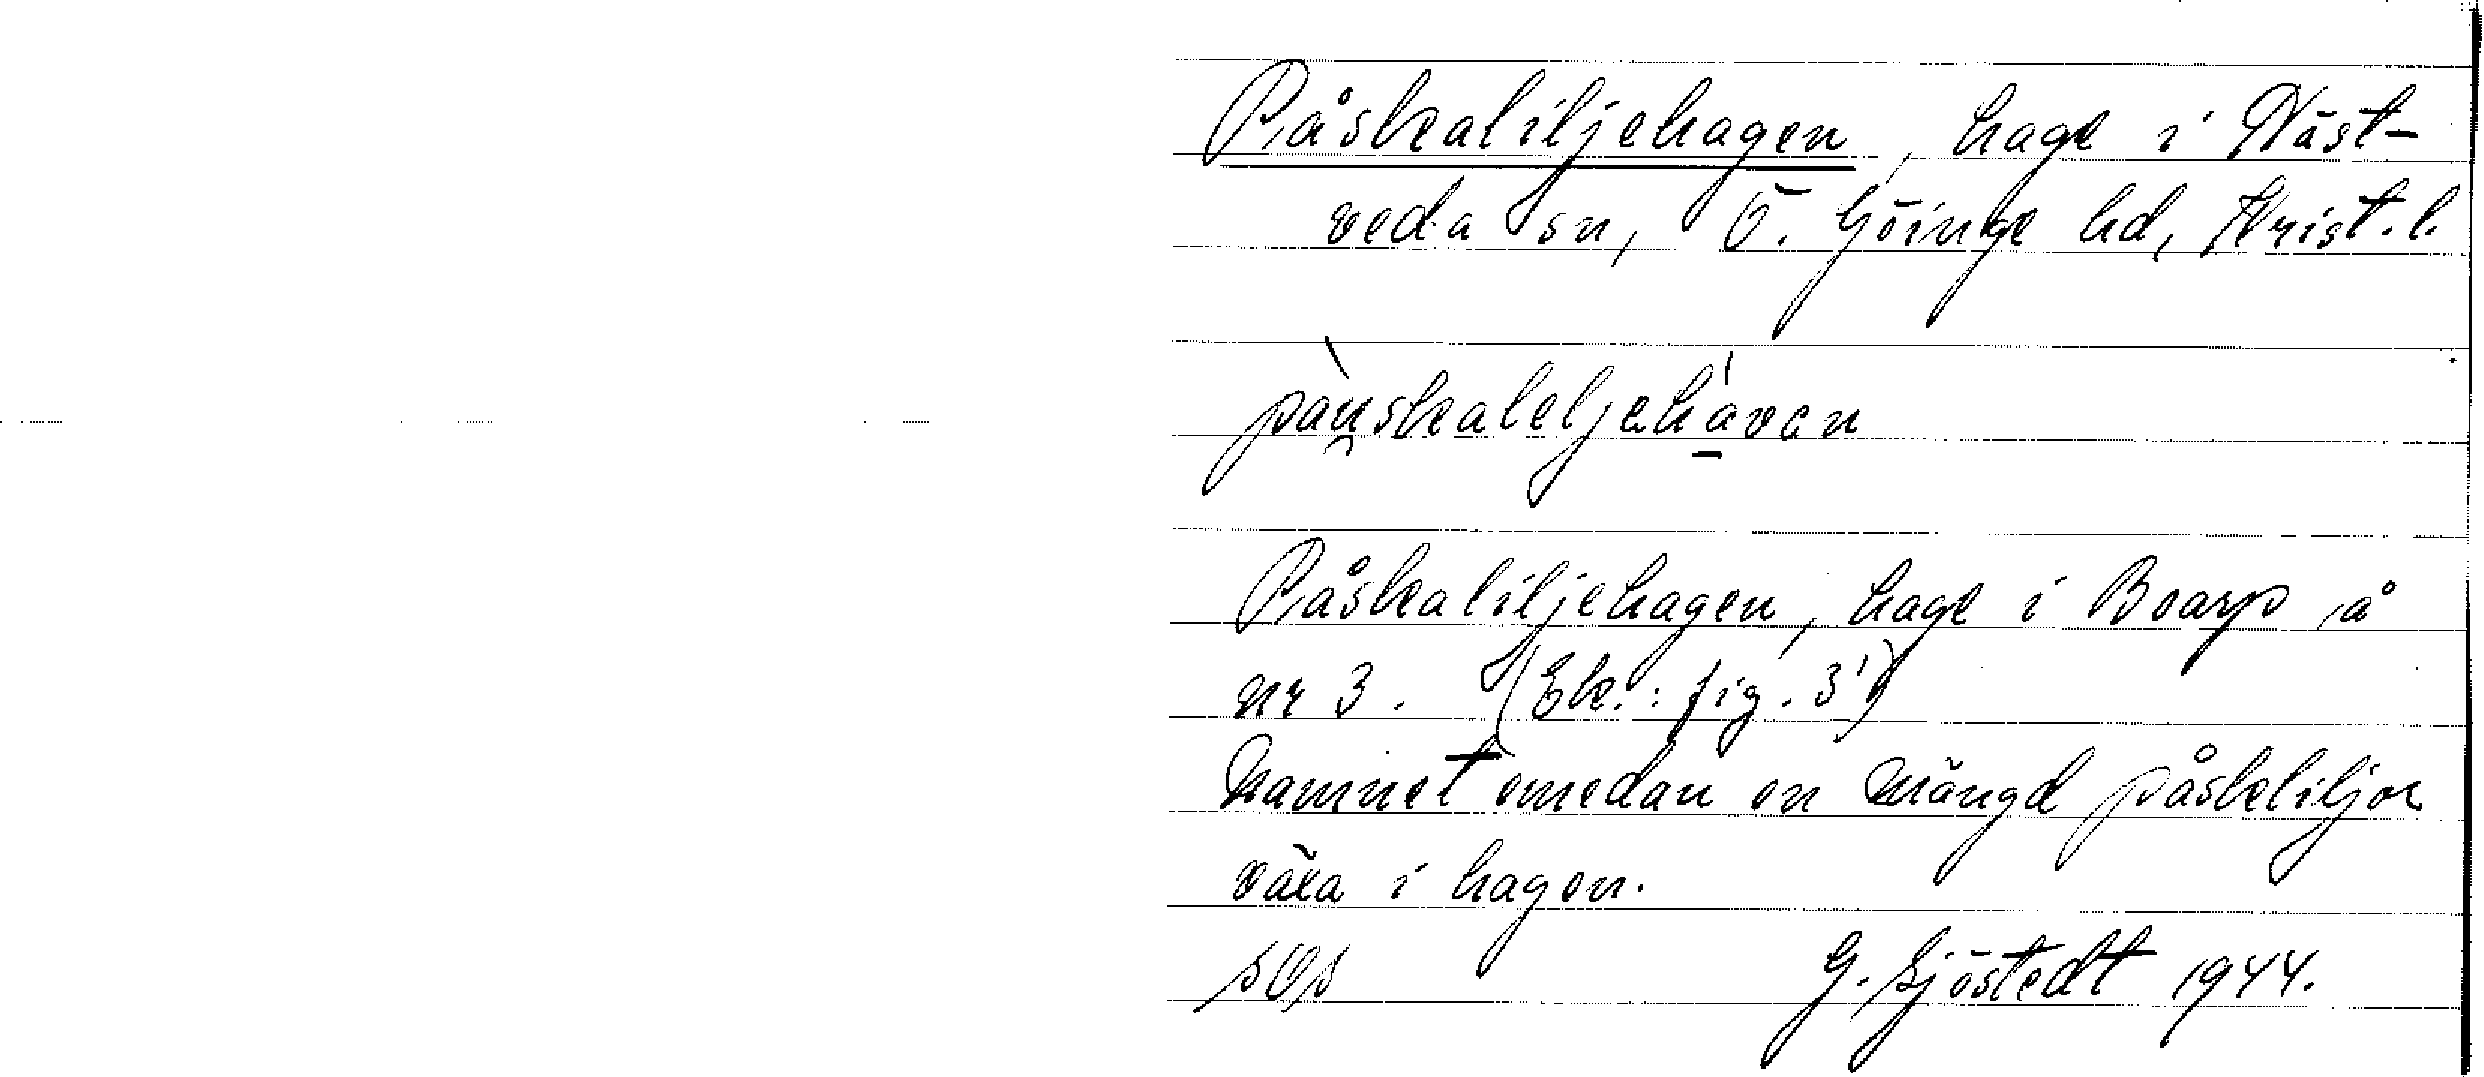 Påskaliljehagen, hage i Näst-
veda sn, Ö. Göinge hd, Krist. l.
pàu̯skaleljehá̱van
Påskaliljehagen, hage i Boarp å
nr 3. (Ek.: fig. 3¹)
Namnet emedan en mängd påskliljor
växa i hagen.
SOS G. Sjöstedt 1944.